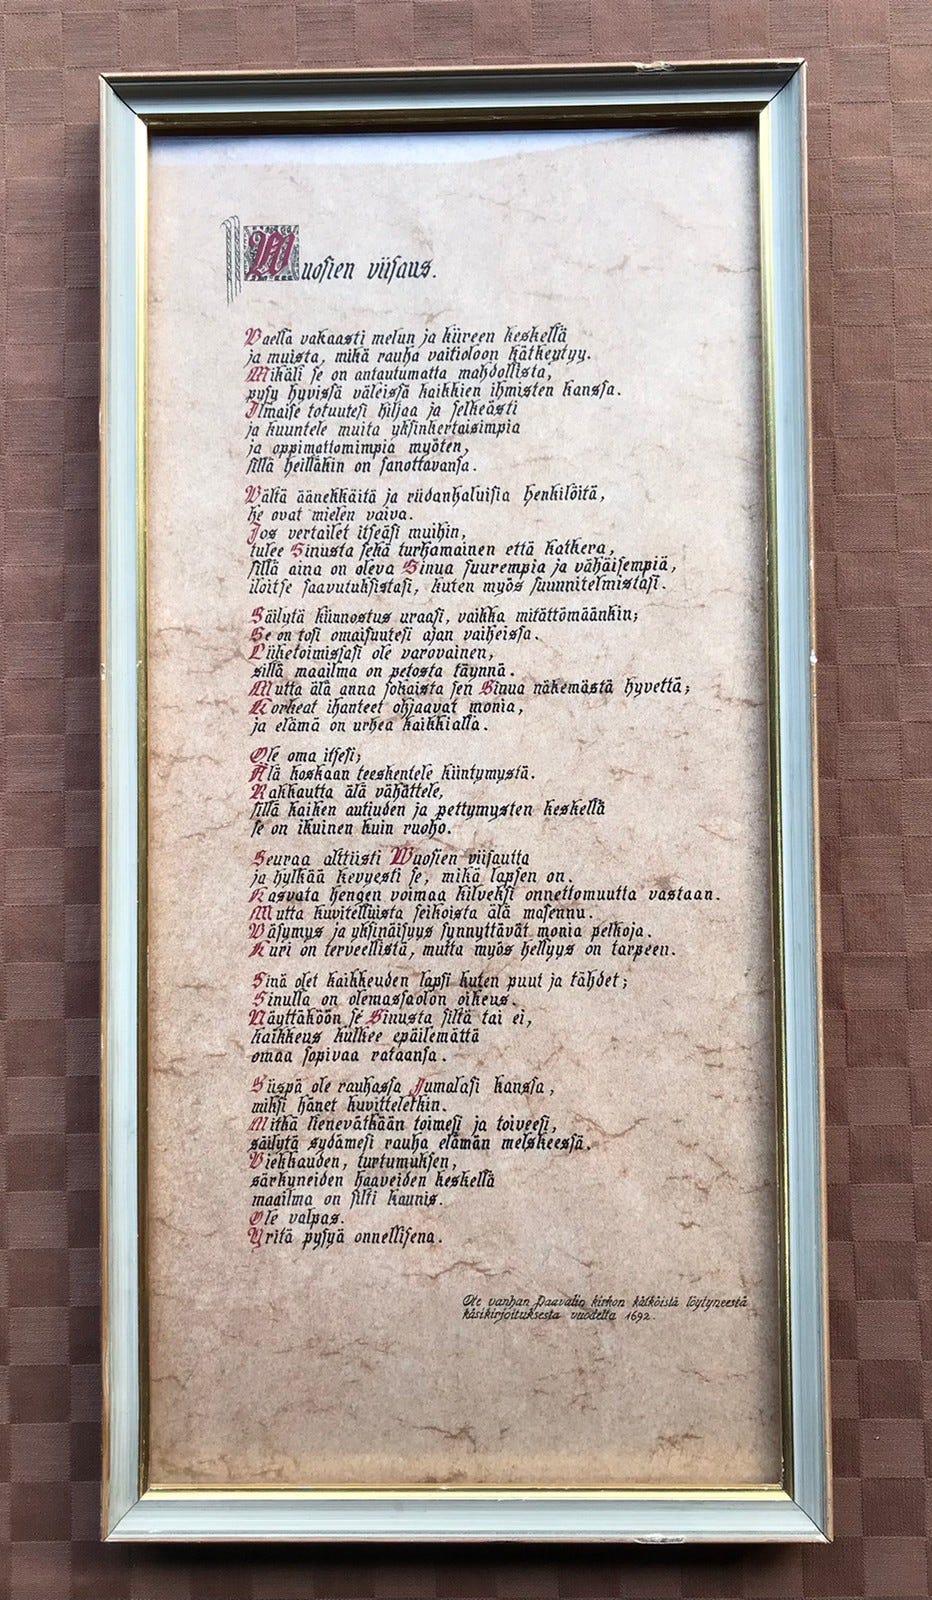 Wuosien viisaus.
Vaella vakaasti melun ja kiireen keskellä
ja muista, mikä rauha vaitioloon kätkeytyy.
Mikäli se on antautumatta mahdollista,
pysy hyvissä väleissä kaikkien ihmisten kanssa.
Ilmaise totuutesi hiljaa ja selkeästi
ja kuuntele muita yksinkertaisimpia
ja oppimattomimpia myöten,
sillä heilläkin on sanottavansa.
Vältä äänekkäitä ja riidanhaluisia henkilöitä,
he ovat mielen vaiva.
Jos vertailet itseäsi muihin,
tulee Sinusta sekä turhamainen että katkera,
sillä aina on oleva Sinua suurempia ja vähäisempiä,
iloitse saavutuksistasi, kuten myös suunnitelmistasi.
Säilytä kiinnostus uraasi, vaikka mitättömäänkin;
Se on tosi omaisuutesi ajan vaiheissa.
Liiketoimissasi ole varovainen,
sillä maailma on petosta täynnä.
Mutta älä anna sokaista sen Sinua näkemästä hyvettä;
Korkeat ihanteet ohjaavat monia,
ja elämä on urhea kaikkialla.
Ole oma itsesi;
Älä koskaan teeskentele kiintymystä.
Rakkautta älä vähättele,
sillä kaiken autiuden ja pettymysten keskellä
se on ikuinen kuin ruoho.
Seuraa alttiisti Wuosien viisautta
ja hylkää kevyesti se, mikä lapsen on.
Kasvata hengen voimaa kilveksi onnettomuutta vastaan.
Mutta kuvitelluista seikoista älä masennu.
Väsymys ja yksinäisyys synnyttävät monia pelkoja.
Kuri on terveellistä, mutta myös hellyys on tarpeen.
Sinä olet kaikkeuden lapsi kuten puut ja tähdet;
Sinulla on olemassaolon oikeus.
Näyttäköön se Sinusta siltä tai ei,
kaikkeus kulkee epäilemättä
omaa sopivaa rataansa.
Siispä ole rauhassa Jumalasi kanssa,
miksi hänet kuvitteletkin.
Mitkä lienevätkään toimesi ja toiveesi,
säilytä sydämesi rauha elämän melskeessä.
Viekkauden, turtumuksen,
särkyneiden haaveiden keskellä
maailma on silti kaunis.
Ole valpas.
Yritä pysyä onnellisena.
Ote vanhan Paavalin kirkon kätköistä löytyneestä
käsikirjoituksesta vuodelta 1692.